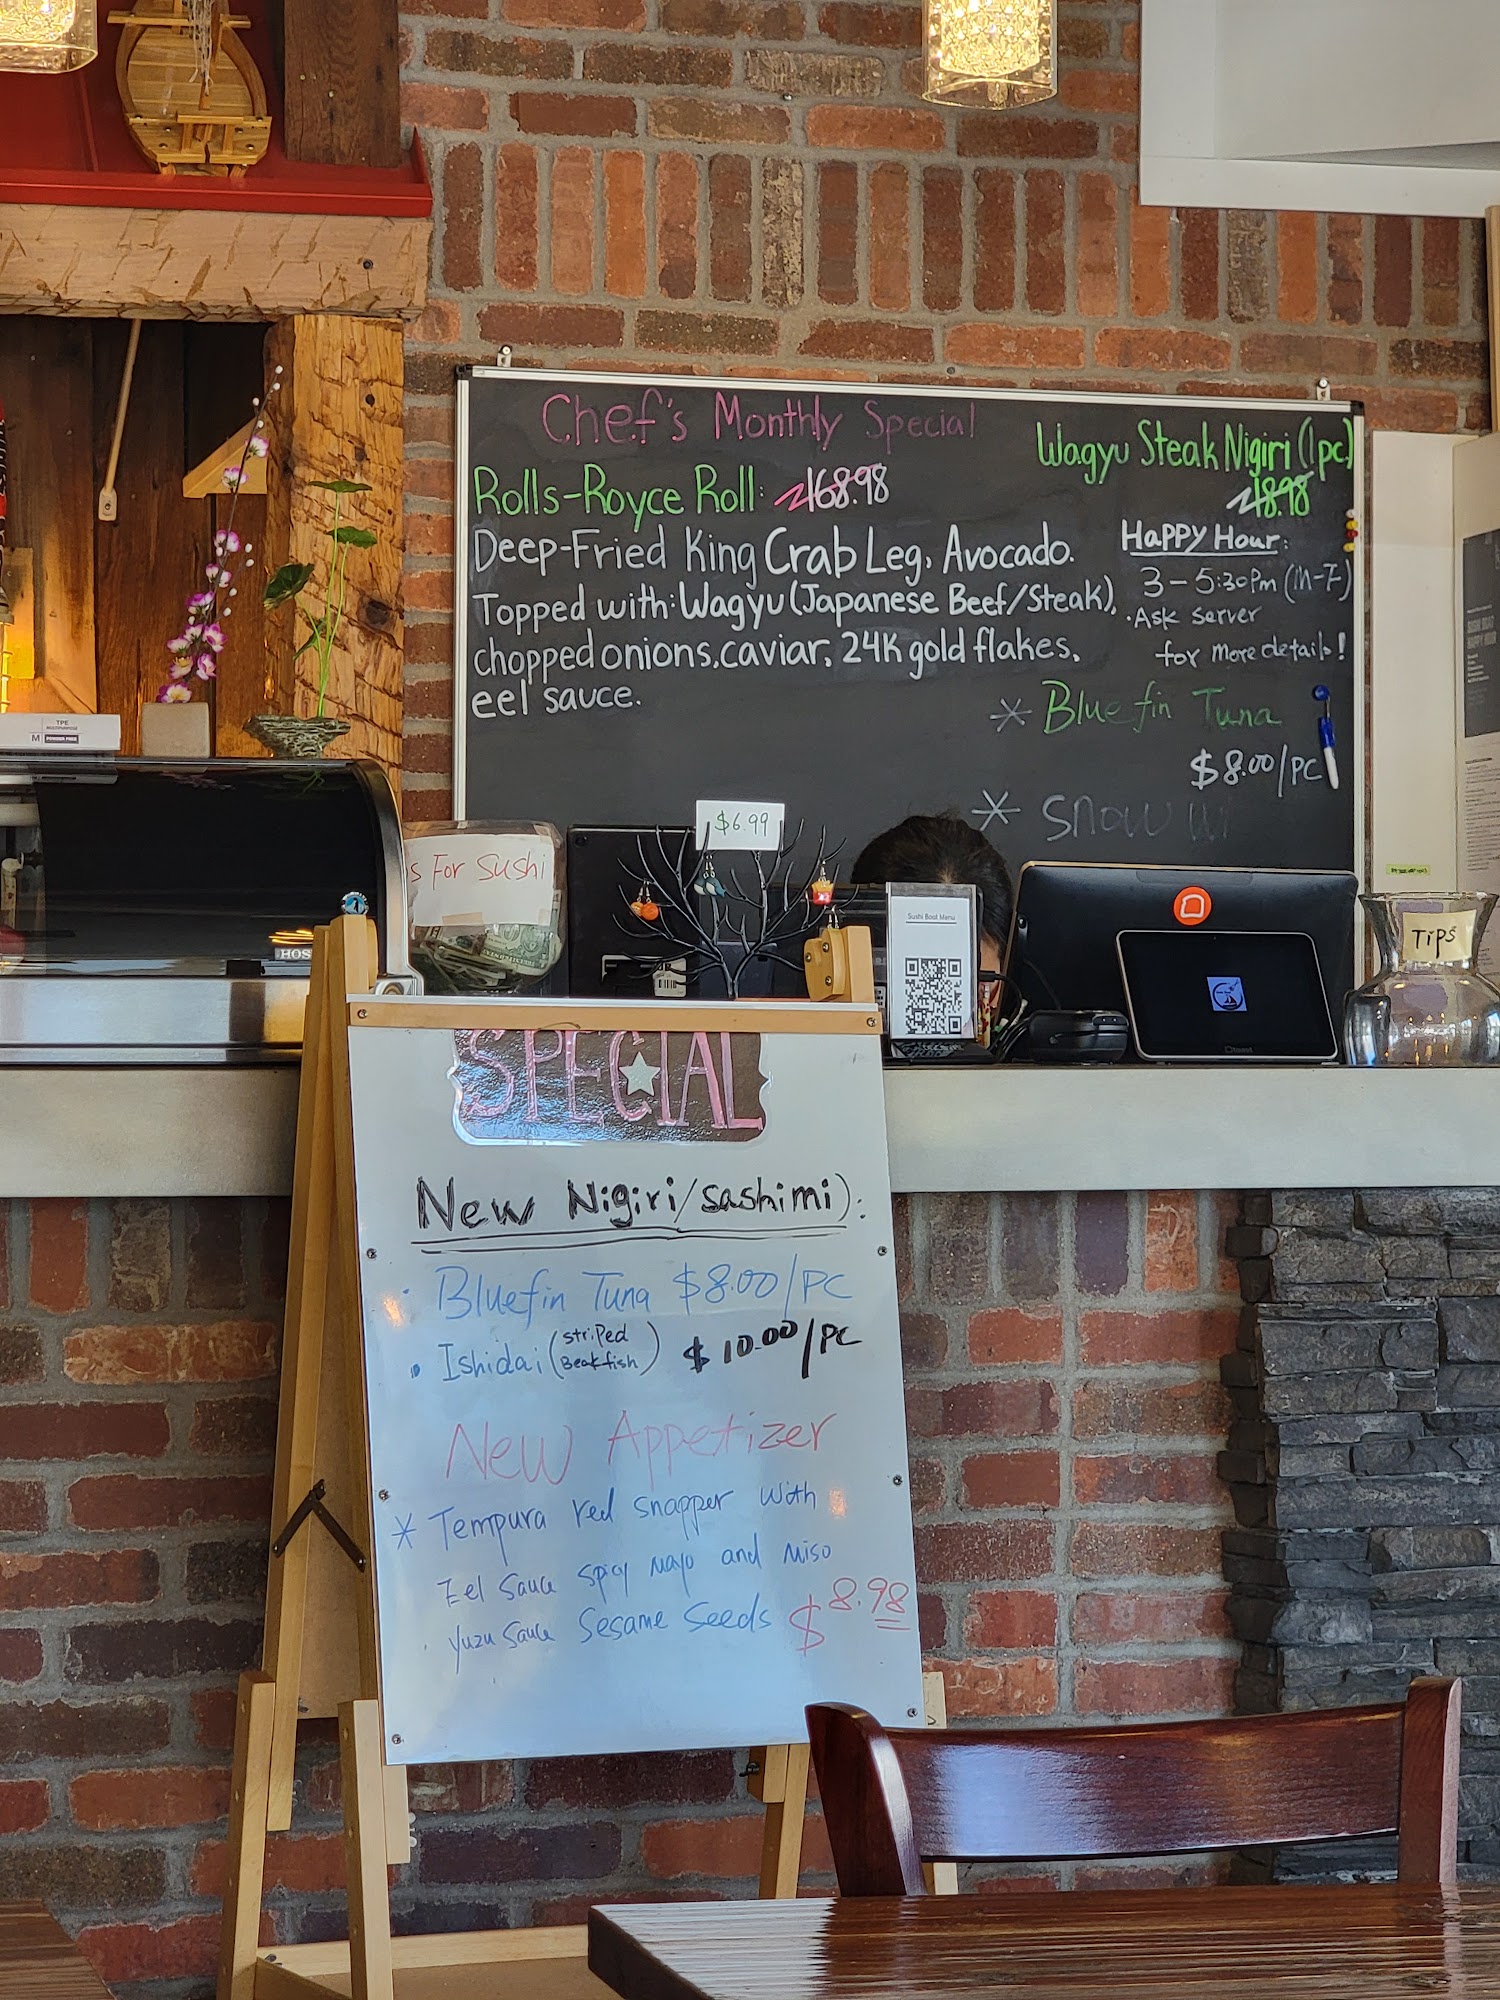 Chef's Monthly Special
Rolls-Royce Roll: 168.98
Deep-Fried King Crab Leg, Avocado.
Topped with: Wagyu (Japanese Beef/Steak),
chopped onions, caviar, 24K gold flakes,
eel sauce.
Wagyu Steak Nigiri (1pc)
18.98
Happy Hour:
3 - 5:30pm (M-F)
· Ask server
for more details!
* Bluefin Tuna
$8.00/PC
* Snow
$6.99
s For Sushi
Sushi Boat Menu
Tips
TPE
M
HOS
toast
SPECIAL
New Nigiri/sashimi):
· Bluefin Tuna $8.00/PC
· Ishidai (striped Beakfish) $10.00/PC
New Appetizer
* Tempura red snapper with
Eel sauce spicy mayo and miso
yuzu sauce Sesame seeds $8.98